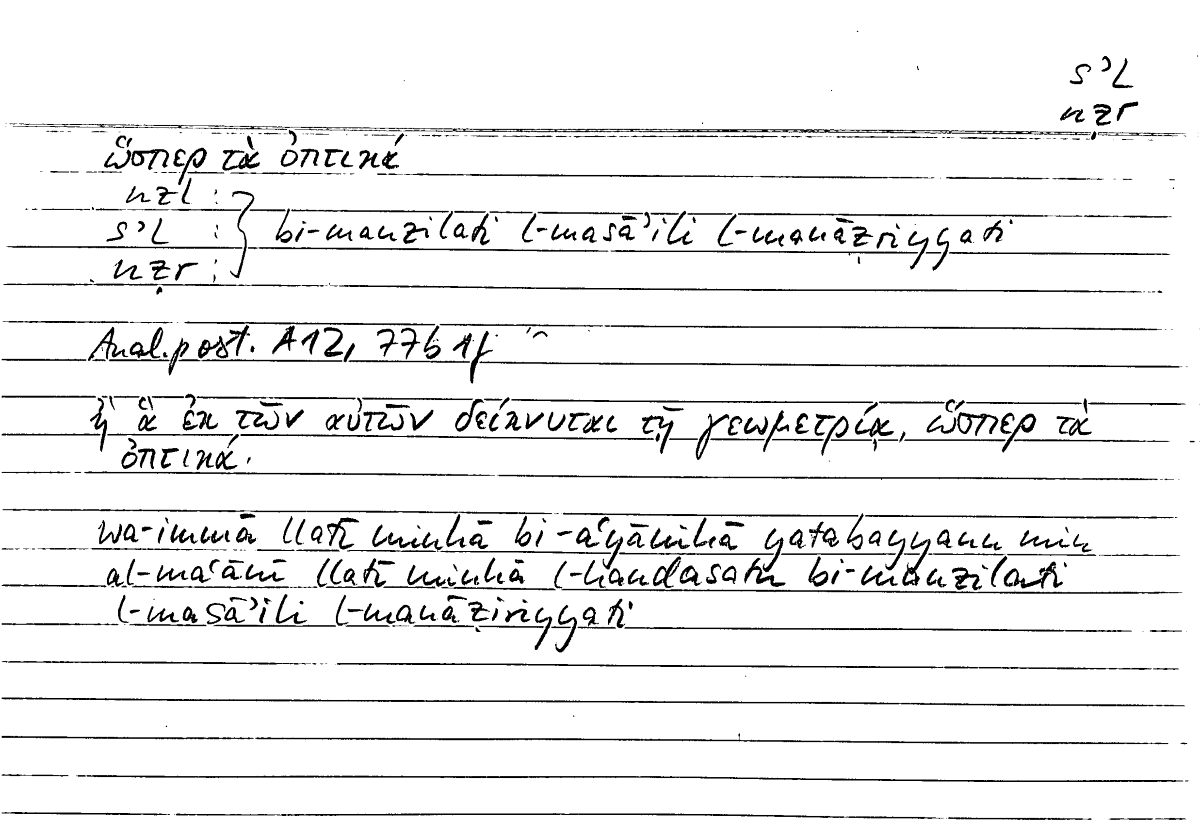 sʾl
nẓr
ὥσπερ τὰ ὀπτικά
nzl :
sʾl : bi-manzilati l-masāʾili l-manāẓriyyati
nẓr :
Anal. post. A12, 77b 1f
ἢ ἃ ἐκ τῶν αὐτῶν δείκνυται τῇ γεωμετρίᾳ, ὥσπερ τὰ
ὀπτικά.
wa-immā llatī minhā bi-aʿyānihā yatabayyanu min
al-maʿānī llatī minhā l-handasatu bi-manzilati
l-masāʾili l-manāẓiriyyati